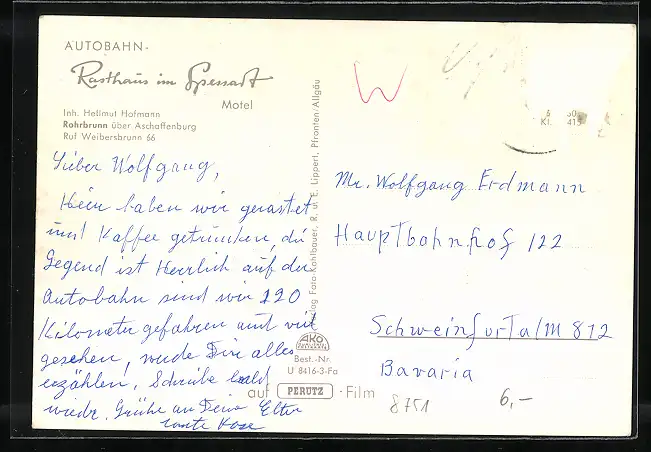 AUTOBAHN-
Rasthaus im Spessart
Motel
Inh. Hellmut Hofmann
Rohrbrunn über Aschaffenburg
Ruf Weibersbrunn 66
Lieber Wolfgang,
Hier haben wir gerastet
und Kaffee getrunken, die
Gegend ist Herrlich auf der
Autobahn sind wir 120
Kilometer gefahren und viel
gesehen, werde Dir alles
erzählen, Schreibe bald
wieder, Grüße an Deine Elter
Foto-Kohlbauer, R. u. E. Lippert, Pfronten/Allgäu
AKO
Best.-Nr.
U 8416-3-Fa
auf PERUTZ-Film
W
Kl. 415
Mr. Wolfgang Erdmann
Hauptbahnhof 122
Schweinfurt a/M 872
Bavaria
8751
6,-